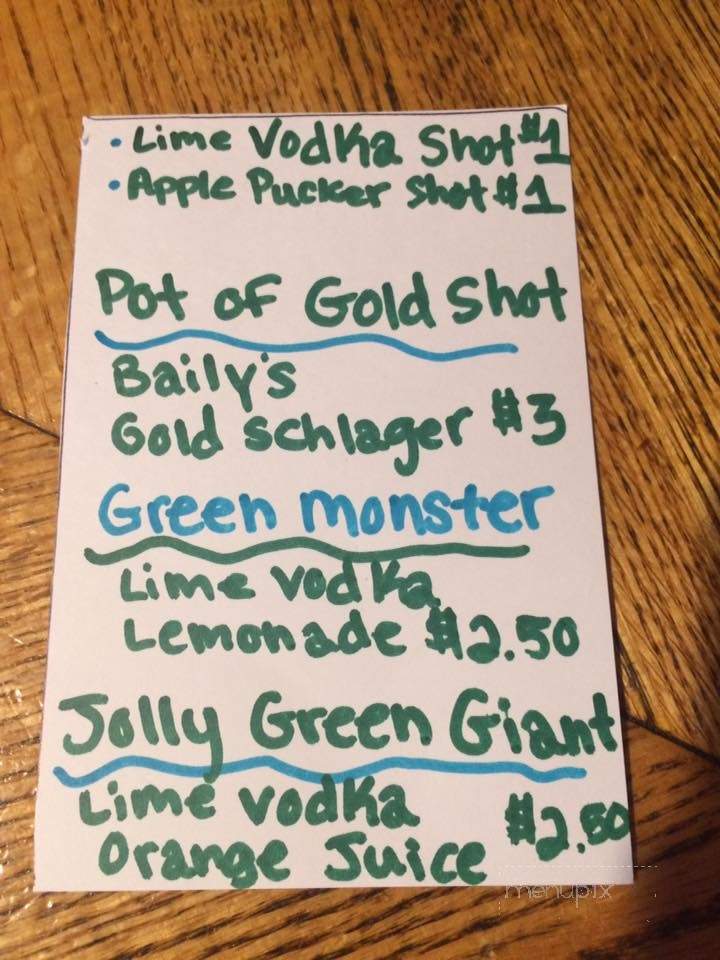 • Lime Vodka Shot $1
• Apple Pucker Shot $1
Pot of Gold Shot
Baily's
Gold schlager $3
Green monster
Lime vodka
Lemonade $2.50
Jolly Green Giant
Lime vodka
Orange Juice $2.50
menupix